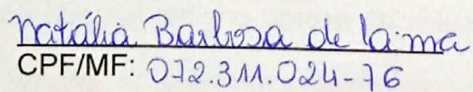 Natália Barbosa de lama
CPF/MF: 072.311.024-76